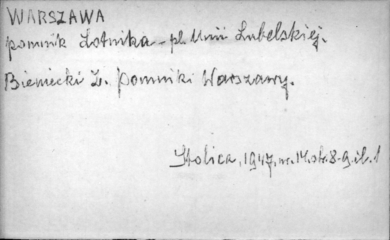 WARSZAWA
pomnik Lotnika - pl. Unii Lubelskiej.
Bieniecki Z. Pomniki Warszawy.
Stolica, 1947, nr. 14. str. 8-9 il. 1